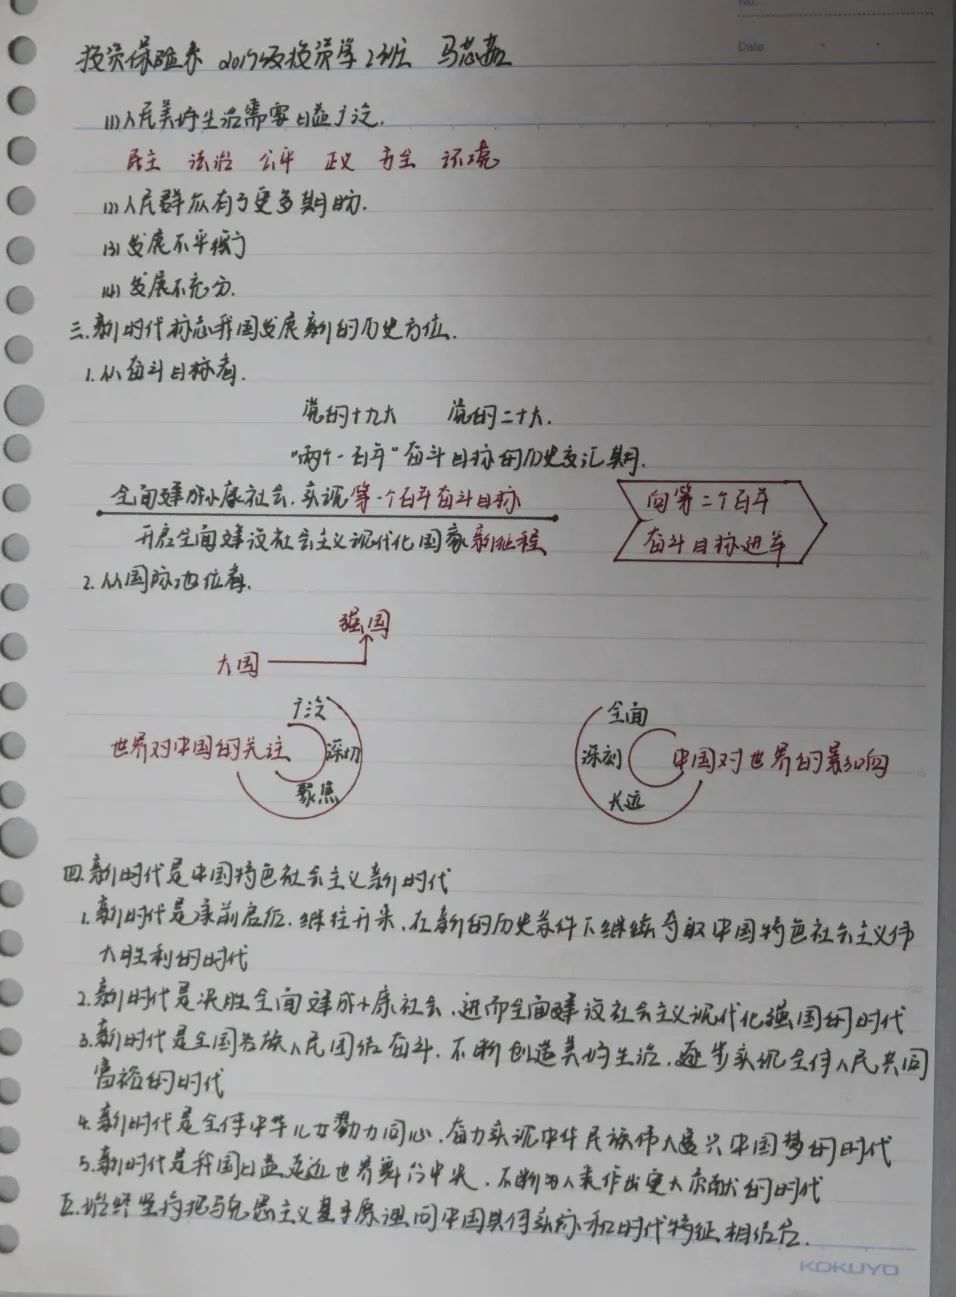 No.
Date
投资保险系 2017级投资学2班 马芯茹
(1)人民美好生活需要日益广泛.
民主 法治 公平 正义 安全 环境
(2)人民群众有了更多期盼.
(3)发展不平衡
(4)发展不充分.
三.新时代标志我国发展新的历史方位.
1.从奋斗目标看.
党的十九大 党的二十大.
"两个一百年"奋斗目标的历史交汇期.
全面建成小康社会.实现第一个百年奋斗目标
开启全面建设社会主义现代化国家新征程
向第二个百年
奋斗目标进军
2.从国际地位看.
强国
大国
广泛
世界对中国的关注
深切
聚焦
全面
深刻
中国对世界的影响
长远
四.新时代是中国特色社会主义新时代
1.新时代是承前启后.继往开来.在新的历史条件下继续夺取中国特色社会主义伟
大胜利的时代
2.新时代是决胜全面建成小康社会.进而全面建设社会主义现代化强国的时代
3.新时代是全国各族人民团结奋斗.不断创造美好生活.逐步实现全体人民共同
富裕的时代
4.新时代是全体中华儿女勠力同心.奋力实现中华民族伟大复兴中国梦的时代
5.新时代是我国日益走近世界舞台中央.不断为人类作出更大贡献的时代
五.始终坚持把马克思主义基本原理同中国具体实际和时代特征相结合.
KOKUYO